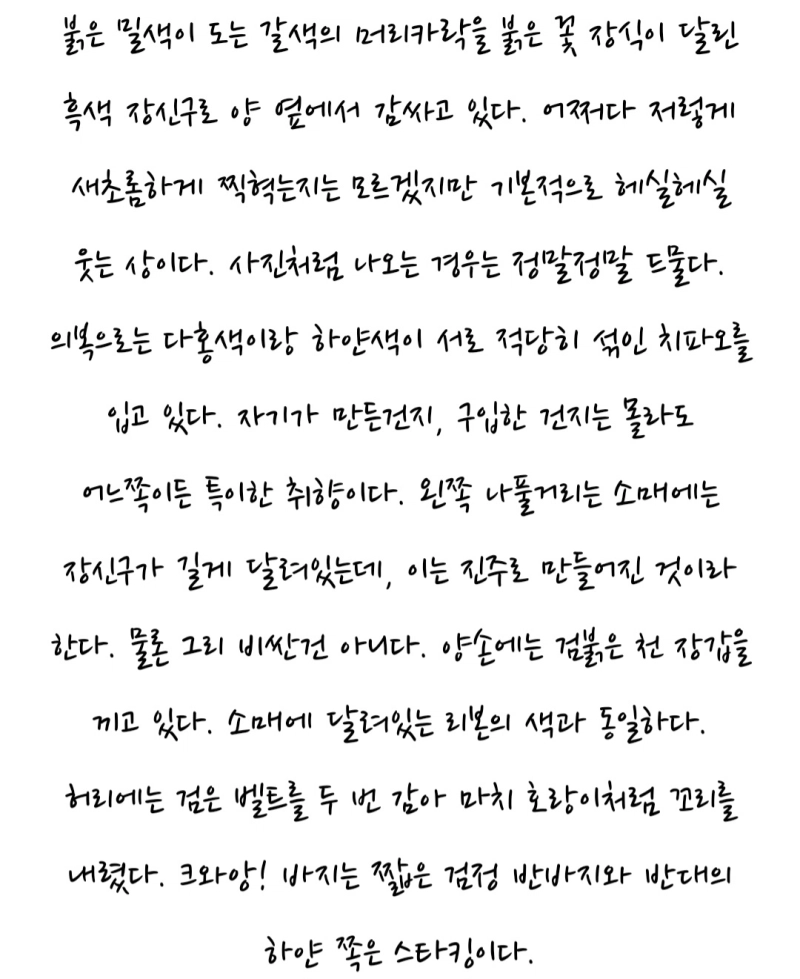 붉은 밀색이 도는 갈색의 머리카락을 붉은 꽃 장식이 달린
흑색 장신구로 양 옆에서 감싸고 있다. 어쩌다 저렇게
새초롬하게 찍혔는지는 모르겠지만 기본적으로 헤실헤실
웃는 상이다. 사진처럼 나오는 경우는 정말정말 드물다.
의복으로는 다홍색이랑 하얀색이 서로 적당히 섞인 치파오를
입고 있다. 자기가 만든건지, 구입한 건지는 몰라도
어느쪽이든 특이한 취향이다. 왼쪽 나풀거리는 소매에는
장신구가 길게 달려있는데, 이는 진주로 만들어진 것이라
한다. 물론 그리 비싼건 아니다. 양손에는 검붉은 천 장갑을
끼고 있다. 소매에 달려있는 리본의 색과 동일하다.
허리에는 검은 벨트를 두 번 감아 마치 호랑이처럼 꼬리를
내렸다. 크와앙! 바지는 짧은 검정 반바지와 반대의
하얀 쪽은 스타킹이다.